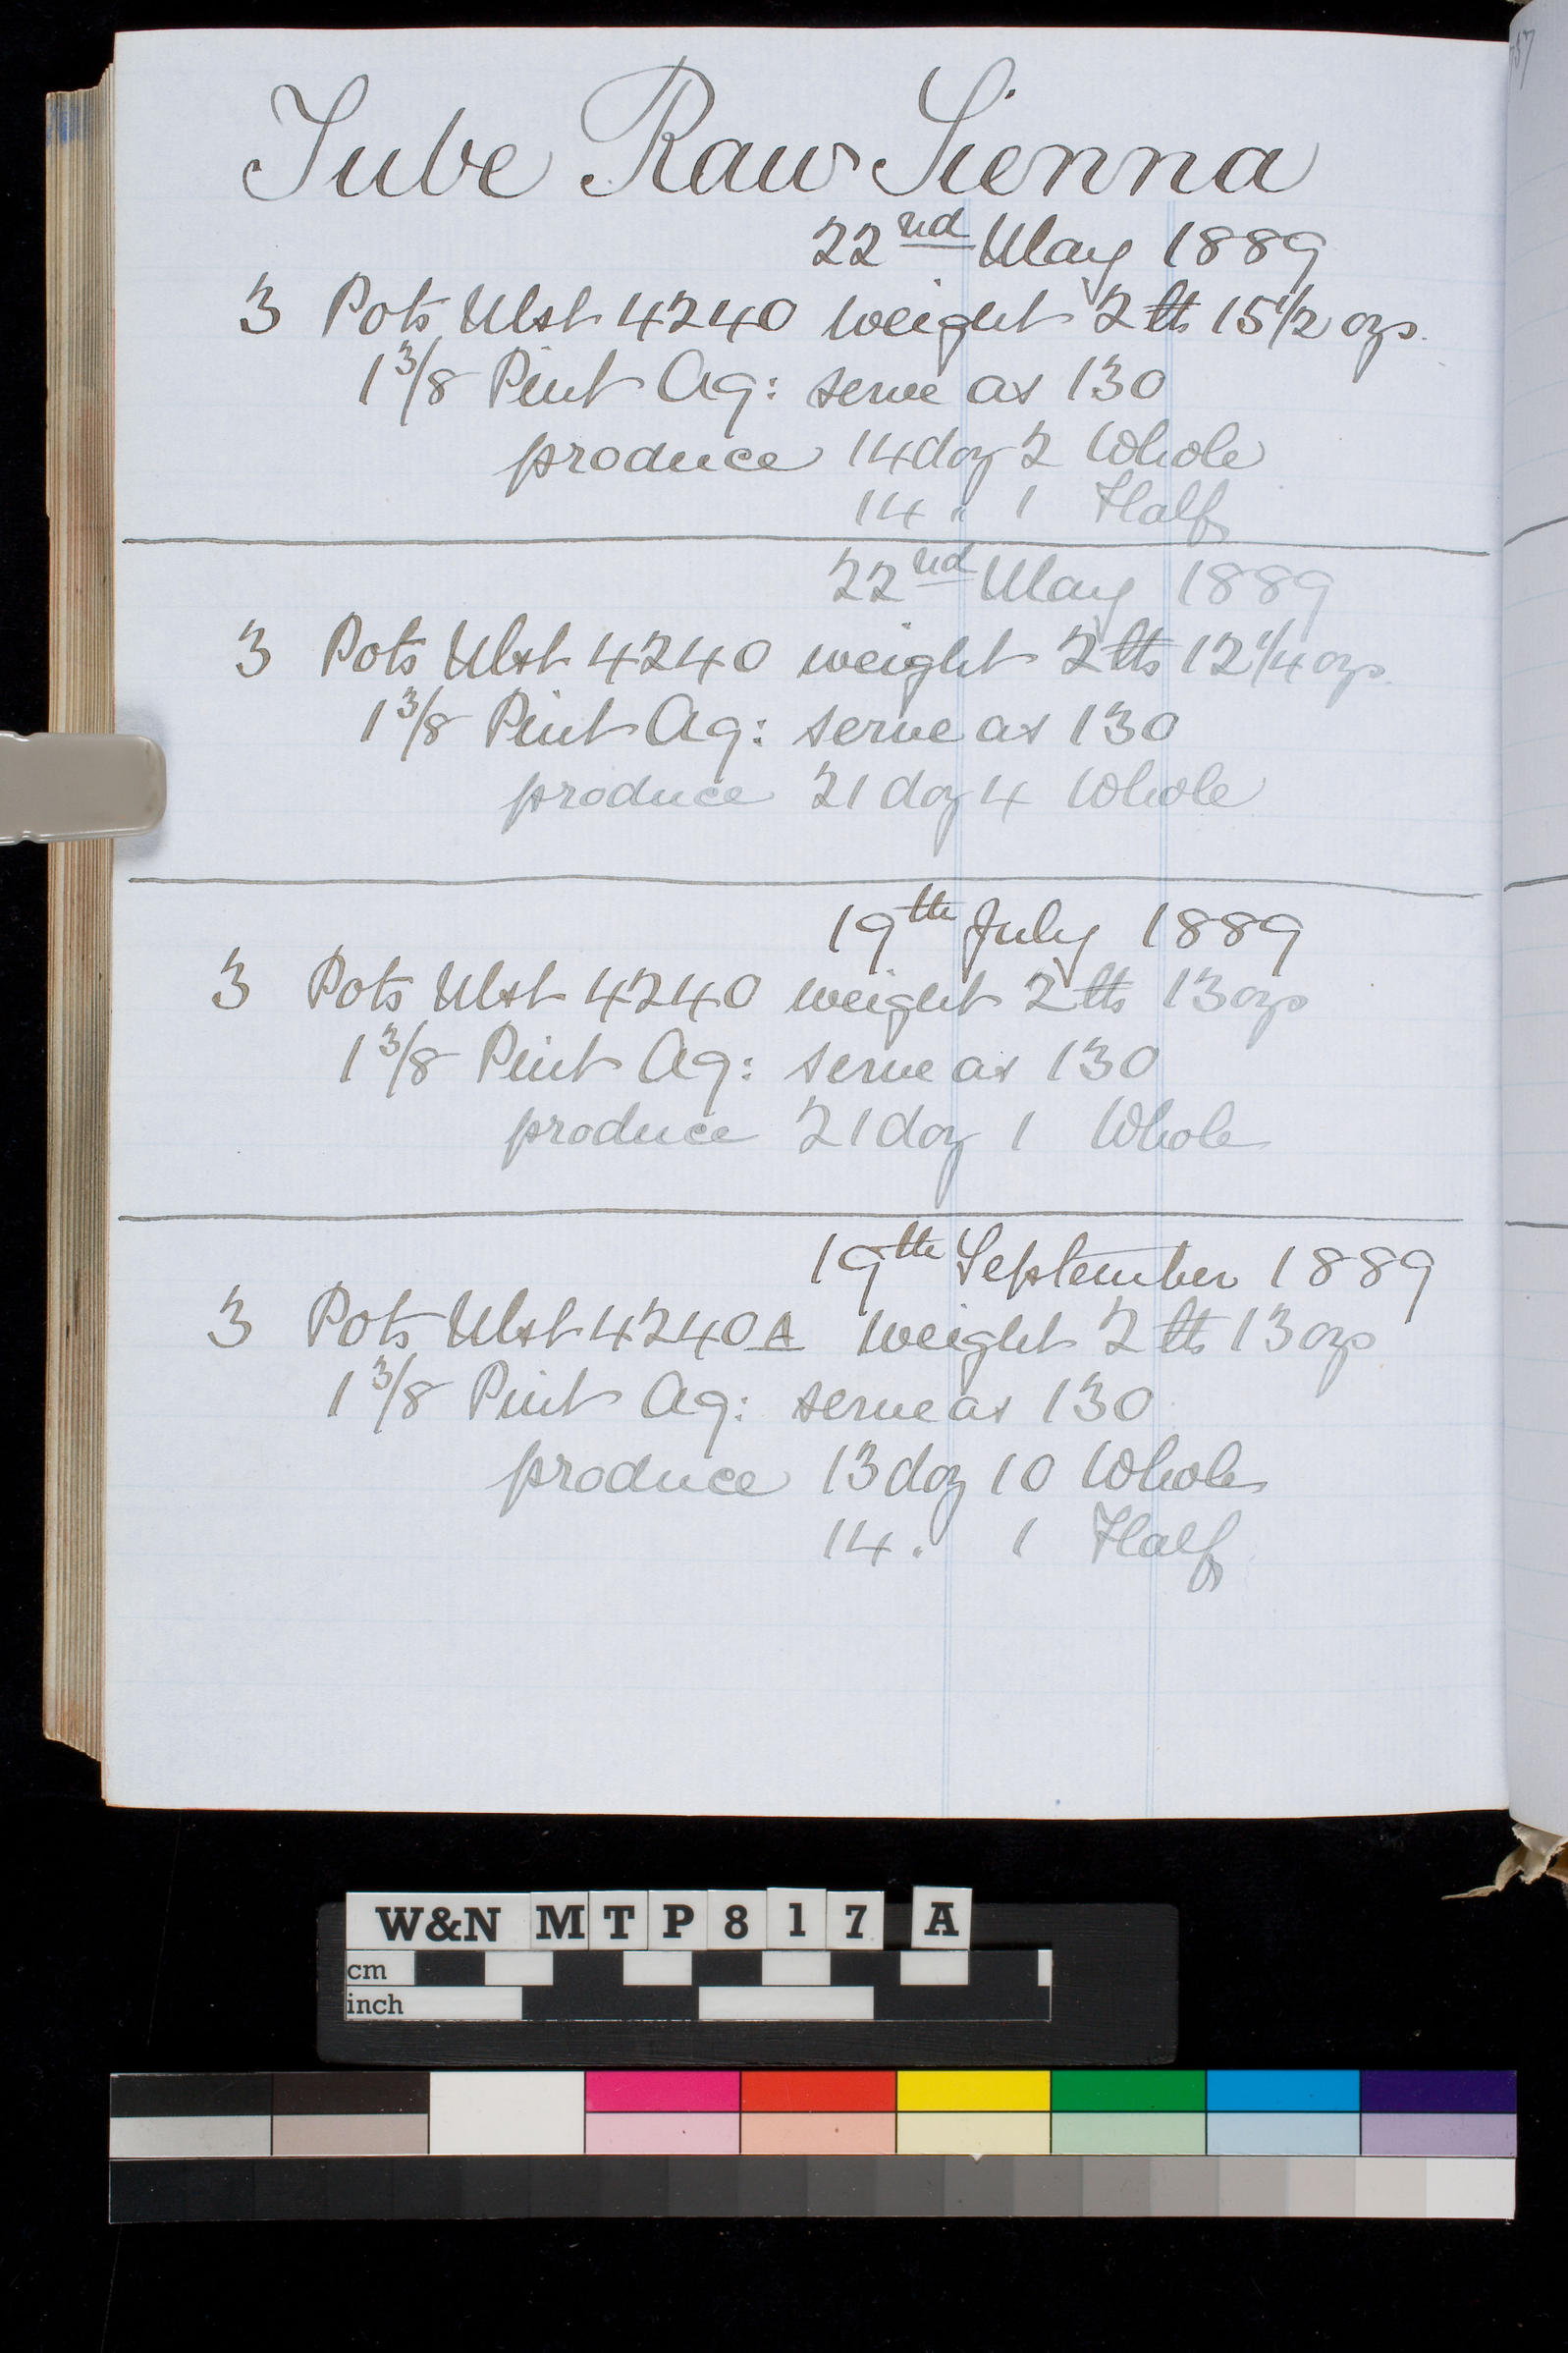 Tube Raw Sienna
22nd May 1889
3 Pots Ulst 4240 weight 2 lb 15 1/2 ozs.
1 3/8 Pint Aq: serve as 130
produce 14 doz 2 Whole
14 " 1 Half
22nd May 1889
3 Pots Ulst 4240 weight 2 lbs 12 1/4 ozs.
1 3/8 Pint Aq: serve as 130
produce 21 doz 4 Whole
19th July 1889
3 Pots Ulst 4240 weight 2 lbs 13 ozs
1 3/8 Pint Aq: serve as 130
produce 21 doz 1 Whole
19th September 1889
3 Pots Ulst 4240A weight 2 lb 13 ozs
1 3/8 Pint Aq: serve as 130
produce 13 doz 10 Whole
14 . 1 Half
W&N MTP817 A
cm
inch